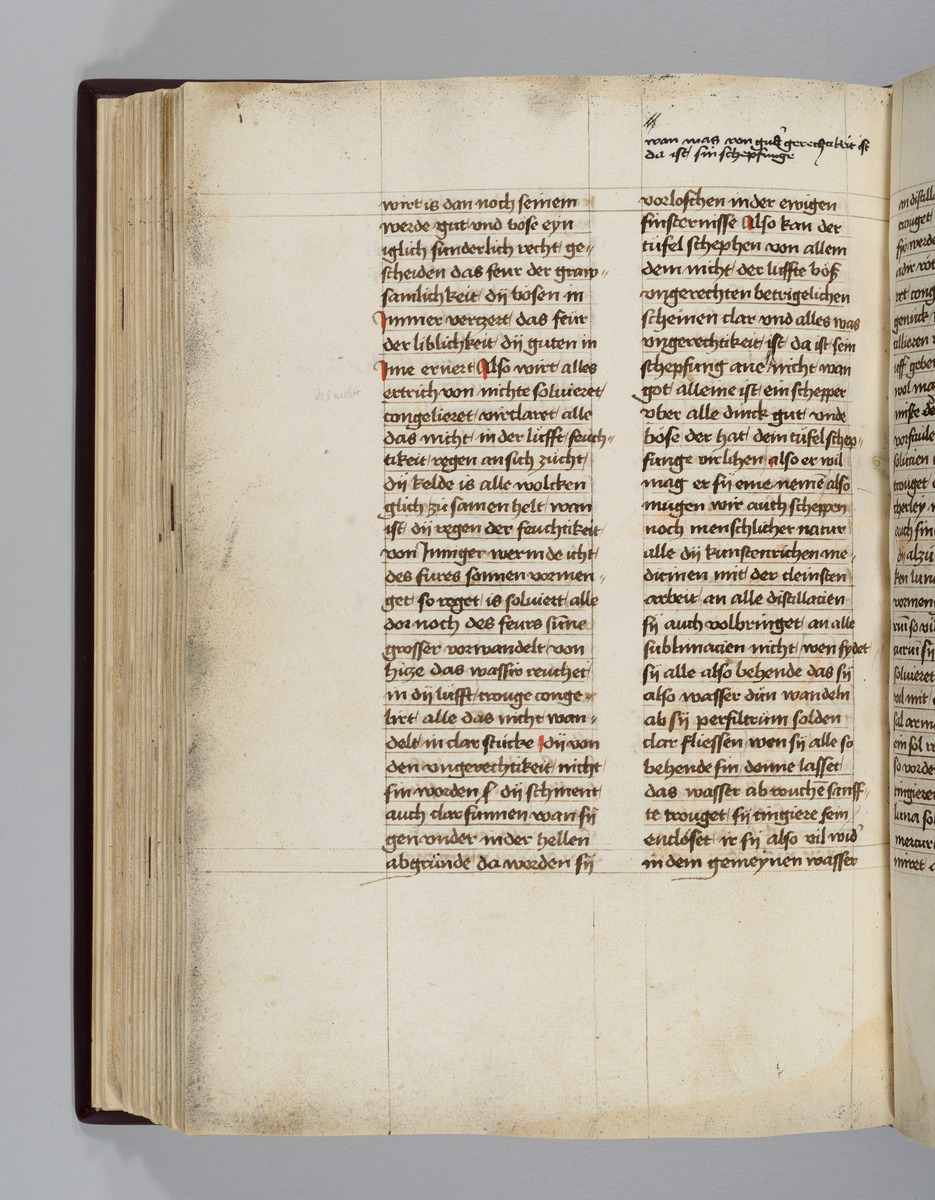 wan was von guter gerechtikeit ist
da ist sin schepfunge
wirt is dan noch seinem
werde gut vnd bose eyn
iglich sunderlich recht ge〃
scheiden das feur der graw〃
samlichkeit dÿ bosen in
Immer verzert das feur
der liblichkeit dÿ guten in
Ime ernert Also wirt alles
ertrich von nichte soluieret
congelieret virclaret alle
das nicht in der lufft feuch〃
tikeit regen an sich zucht
dÿ kelde is alle wolcken
glich zu samen helt wan
ist dÿ regen der feuchtikeit
von Inniger werm de icht
des fures sonnen vormen〃
get so reget is soluiert alle
dor noch des feurs sunne
grosser vorwandelt von
hitze das wassir reuchet
in dÿ lufft trouge conge〃
lirt alle das nicht wan〃
delt in clar stucke dÿ von
den vngerechtikeit nicht
sin worden dÿ schinent
auch clar sunnen wan sÿ
gen vnder in der hellen
abgrunde da werden sÿ
vorloschen in der ewigen
finsternisse Also kan der
tufel schephen von allem
dem nicht der luffte boß
vngerechten betrigelichen
scheinen clar vnd alles was
vngerechtikeit ist da ist sein
schepfung ane nicht wan
got alleine ist ein schepper
vber alle dinck gut vnde
bose der hat dem tufel schep〃
funge virlihen also er wil
mag er sÿ eme nemen also
mugen wir auch scheppen
noch menschlicher natur
alle dÿ kunstenrichen me〃
dicinen mit der cleinsten
arbeit an alle distillacien
sÿ auch volbringet an alle
sublimacien nicht wen sydet
sÿ alle also behende das sÿ
also wasser dun wandeln
ab sÿ perfiltrum solden
clar fliessen wen sÿ alle so
behende sin denne lasset
das wasser ab rouchen sanff〃
te trouget sÿ tingiere sein
encloset ir sÿ also vil wider
in dem gemeynen wasser